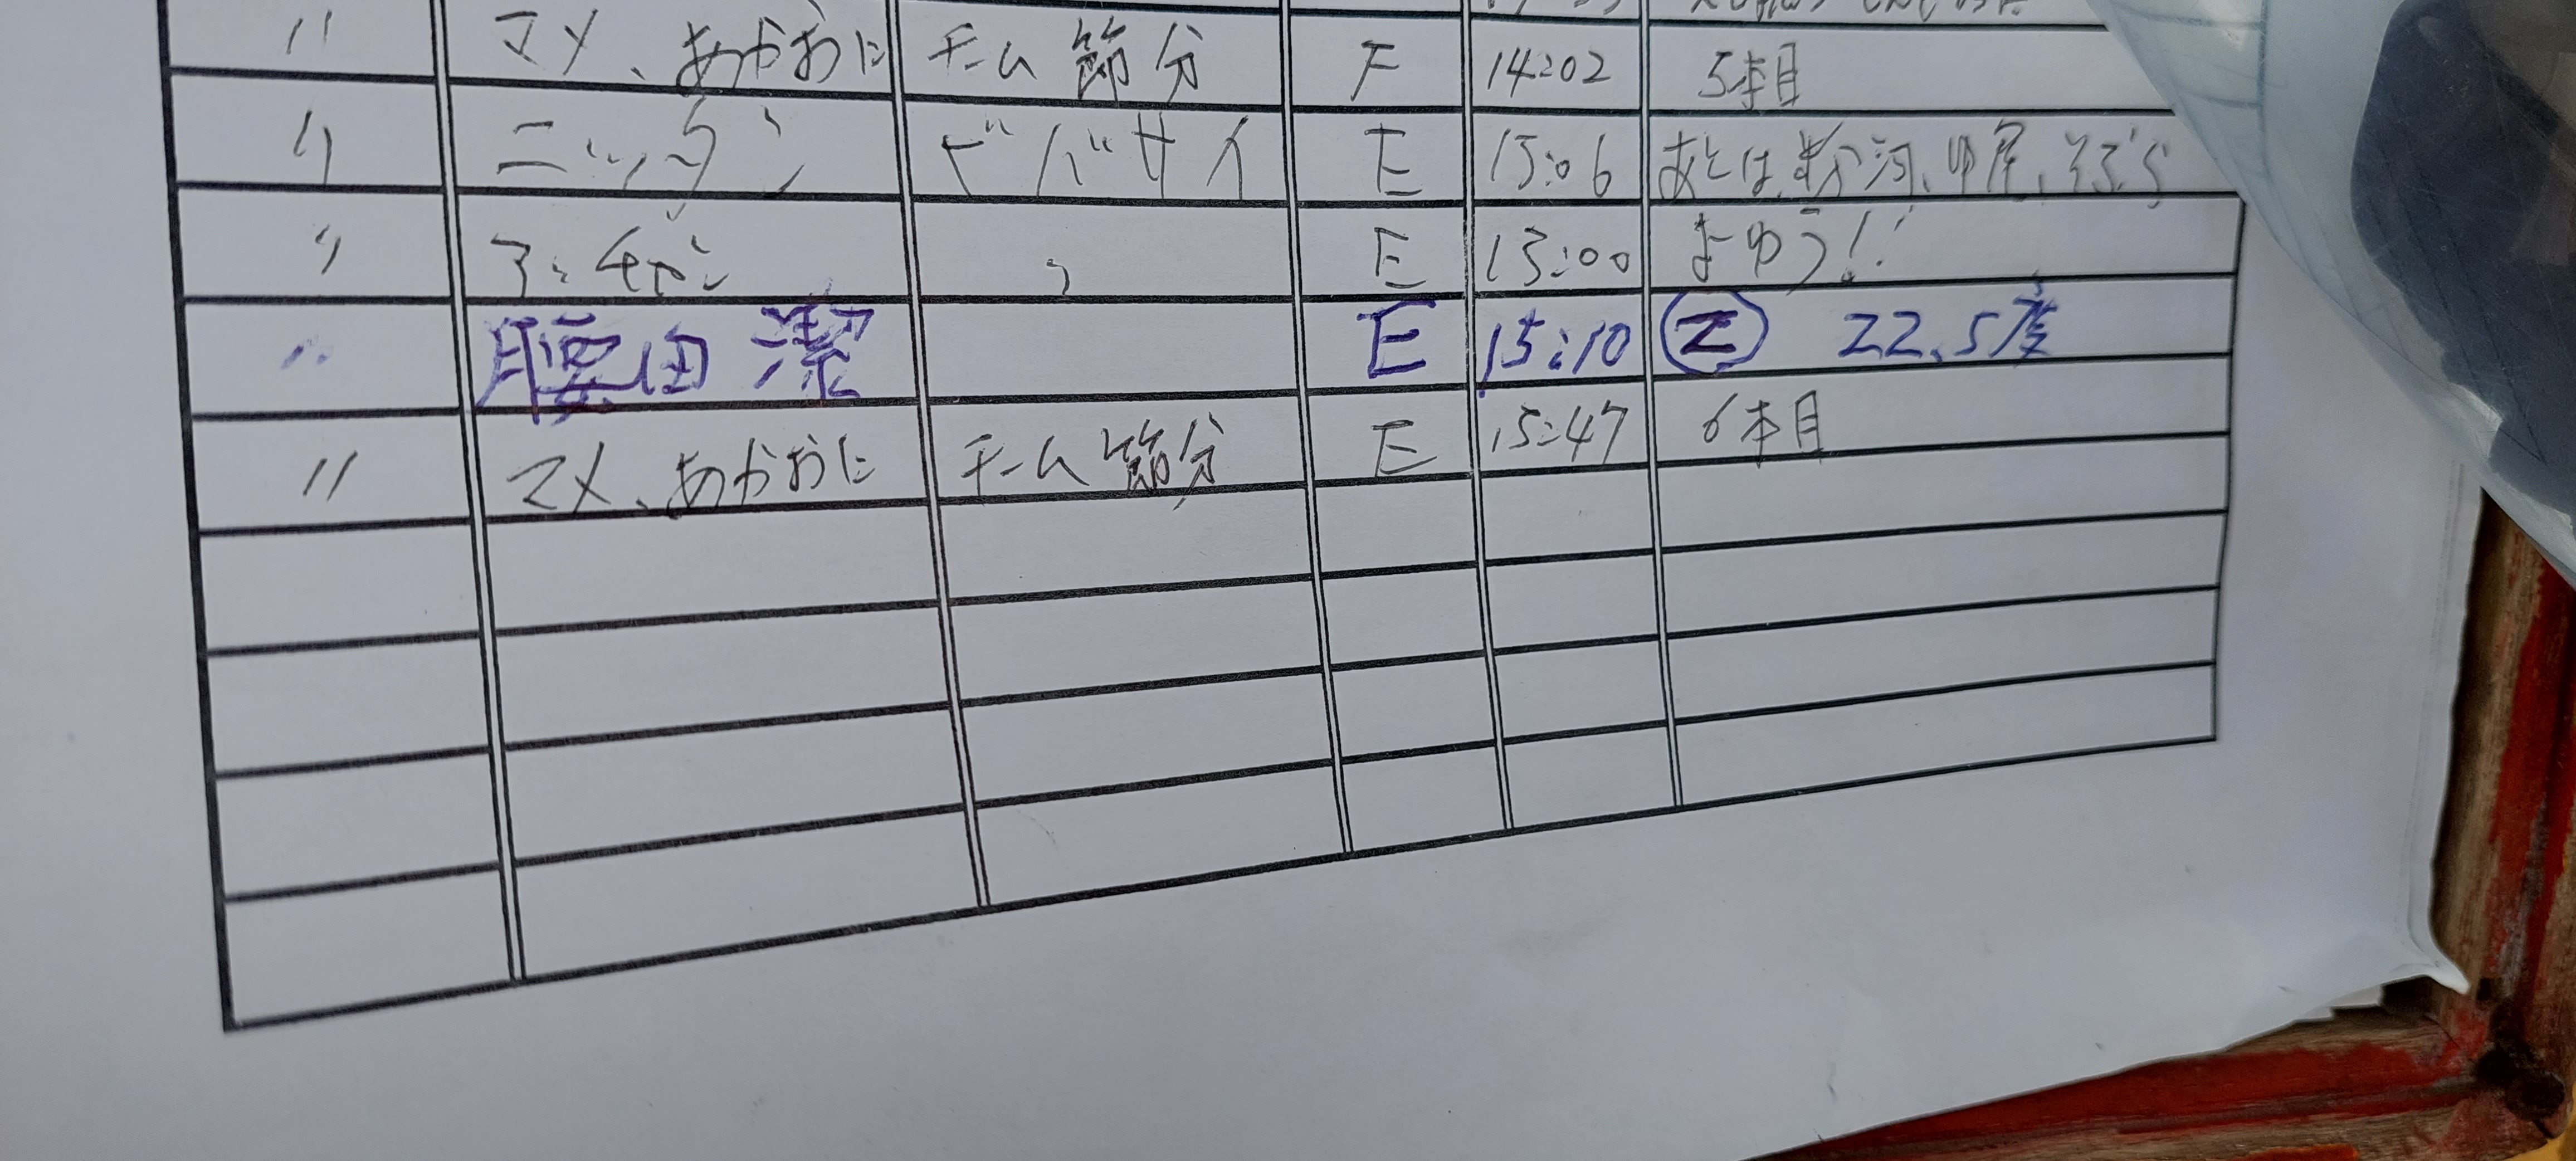 〃 マメ、あかおに チーム 節分 F 14:02 5本目
〃 ニッタン ビバサイ E 15:06 あとは、粉河、
〃 E 15:00 まゆう!!
〃 腰田 潔 E 15:10 ② 22.5度
〃 マメ、あかおに チーム 節分 E 15:47 6本目